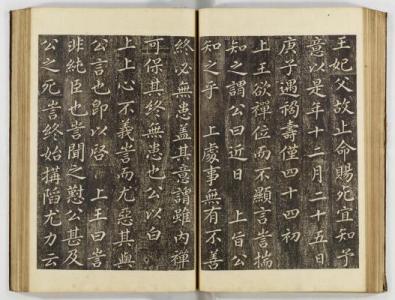 王妃父故止命賜死宜知予
意以是年十二月二十五日
庚子遇禍壽僅四十四初
上王欲禪位而不顯言訔揣
知之謂公曰近日　上旨公
知之乎　上處事無有不善
終必無患盖其意謂雖內禪
可保其終無患也公以白
上上心不義訔而尤惡其與
公言也卽以啓　上王曰訔
非純臣也訔聞之慙公甚及
公之死訔終始搆陷尤力云